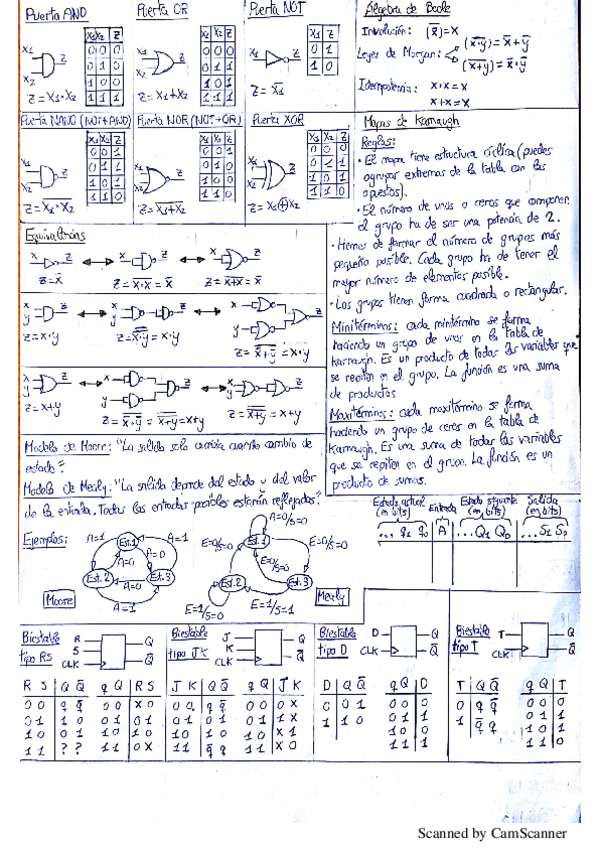 Puerta AND
X1 X2 Z
0 0 0
0 1 0
1 0 0
1 1 1
X1
X2
Z
Z = X1·X2
Puerta OR
X1 X2 Z
0 0 0
0 1 1
1 0 1
1 1 1
X1
X2
Z
Z = X1+X2
Puerta NOT
X1 Z
0 1
1 0
X1
Z
Z = X̅1
Algebra de Boole
Involución: (x̅)=x
Leyes de Morgan:
(x·y)‾ = x̅+y̅
(x+y)‾ = x̅·y̅
Idempotencia: x·x = x
x+x = x
Puerta NAND (NOT+AND)
X1 X2 Z
X1
X2
Z
Z = (X1·X2)‾
Puerta NOR (NOT+OR)
X1 X2 Z
X1
X2
Z
Z = (X1+X2)‾
Puerta XOR
X1 X2 Z
X1
X2
Z
Z = X1⊕X2
Mapas de Karnaugh
Reglas:
· El mapa tiene estructura cíclica (puedes
agrupar extremos de la tabla con los
opuestos).
· El número de unos o ceros que componen
el grupo ha de ser una potencia de 2.
· Hemos de formar el número de grupos más
pequeño posible. Cada grupo ha de tener el
mayor número de elementos posible.
· Los grupos tienen forma cuadrada o rectangular.
Minitérminos: cada minitérmino se forma
haciendo un grupo de unos en la tabla de
Karnaugh. Es un producto de todas las variables que
se repiten en el grupo. La función es una suma
de productos
Maxitérminos: cada maxitérmino se forma
haciendo un grupo de ceros en la tabla de
Karnaugh. Es una suma de todas las variables
que se repiten en el grupo. La función es un
producto de sumas.
Equivalencias
Z = x̅
Z = (x·x)‾ = x̅
Z = (x+x)‾ = x̅
Z = x·y
Z = x·y
Z = (x̅+y̅)‾ = x·y
Z = x+y
Z = (x̅·y̅)‾ = x+y
Z = x+y
Modelo de Moore: "La salida solo cambia cuando cambio de
estado"
Modelo de Mealy: "La salida depende del estado y del valor
de la entrada. Todas las entradas posibles estarán reflejadas"
Ejemplos:
A=1
Est.1
A=1
A=0
A=0
Est.2
Est.3
A=0
A=1
Moore
A=0/S=0
E=0/S=0
Est.1
E=0/S=0
E=0/S=0
Est.2
Est.3
E=1/S=0
E=1/S=1
Mealy
Estado actual (m bits)
Entrada
Estado siguiente (m bits)
Salida (m bits)
... q1 q0
A
... Q1 Q0
... S1 S0
Biestable
tipo RS
R
S
CLK
Q
Q̅
R S Q Q̅
0 0 q q̅
0 1 1 0
1 0 0 1
1 1 ? ?
q Q R S
0 0 X 0
0 1 0 1
1 0 1 0
1 1 0 X
Biestable
tipo JK
J
K
CLK
Q
Q̅
J K Q Q̅
0 0 q q̅
0 1 0 1
1 0 1 0
1 1 q̅ q
q Q J K
0 0 0 X
0 1 1 X
1 0 X 1
1 1 X 0
Biestable
tipo D
D
CLK
Q
Q̅
D Q Q̅
0 0 1
1 1 0
q Q D
0 0 0
0 1 1
1 0 0
1 1 1
Biestable
tipo T
T
CLK
Q
Q̅
T Q Q̅
0 q q̅
1 q̅ q
q Q T
0 0 0
0 1 1
1 0 1
1 1 0
Scanned by CamScanner